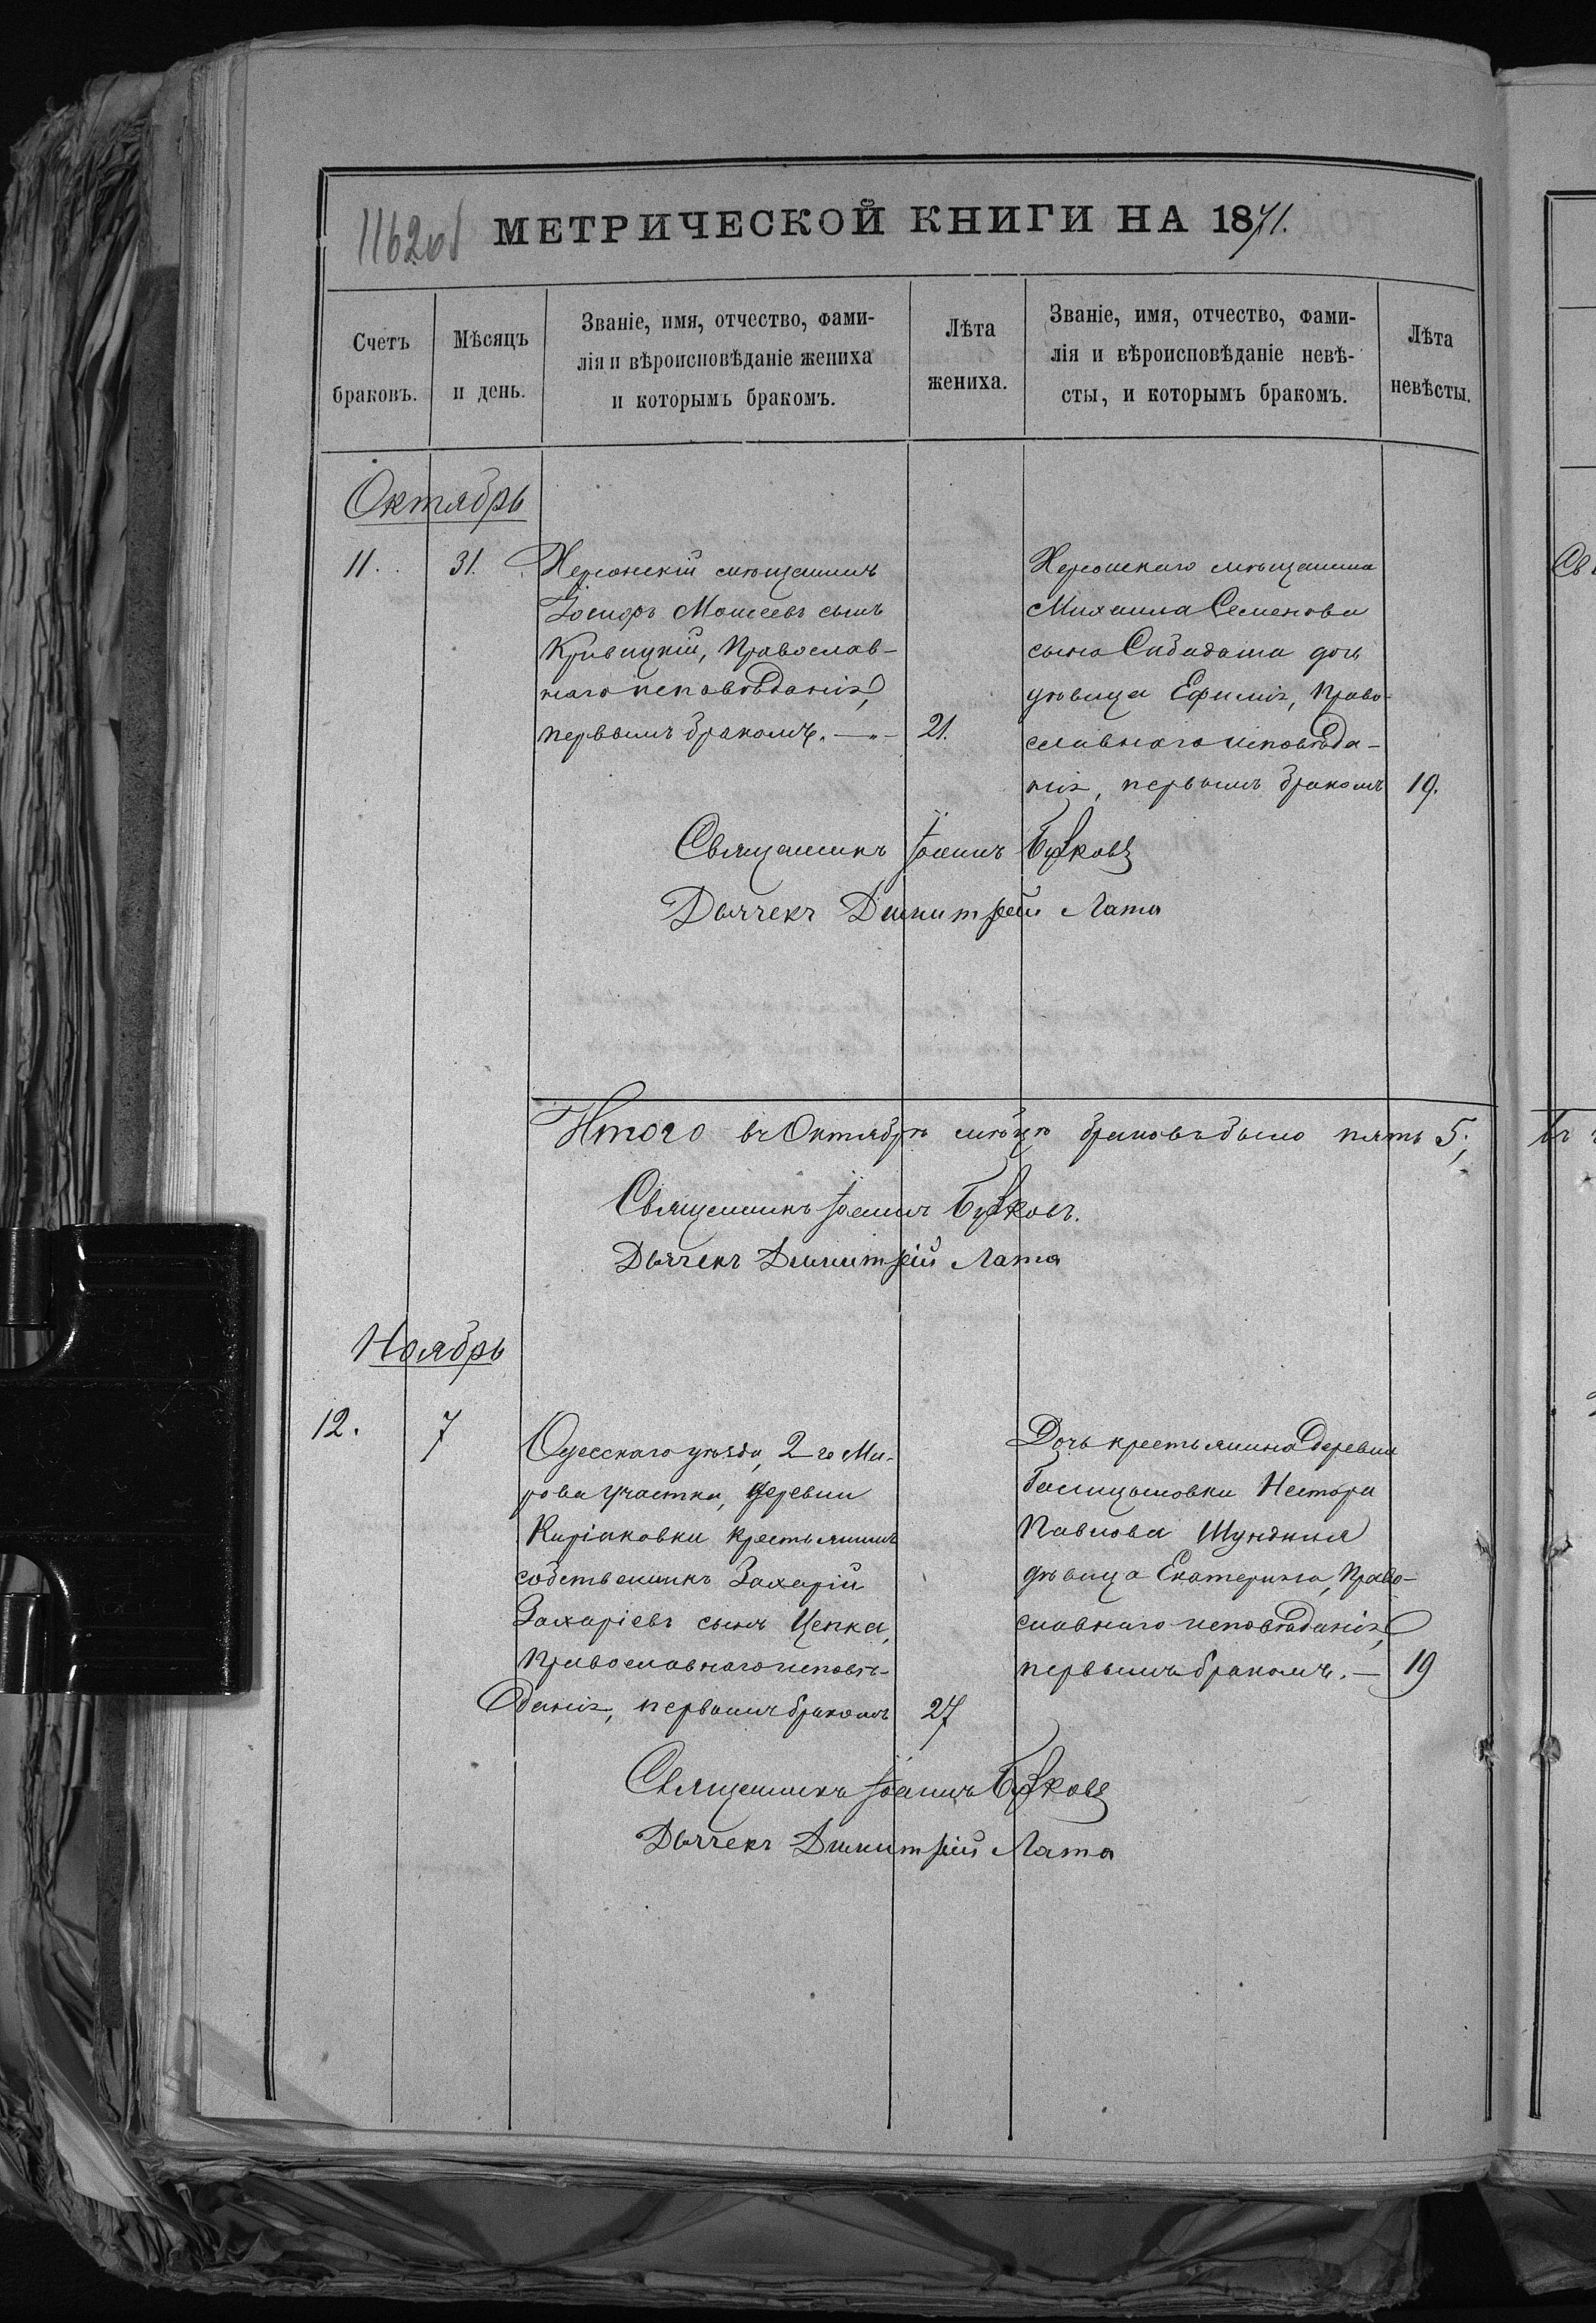 1162об
МЕТРИЧЕСКОЙ КНИГИ НА 1871.
Счетъ
браковъ.
Мѣсяцъ
и день.
Званіе, имя, отчество, фами-
лія и вѣроисповѣданіе жениха
и которымъ бракомъ.
Лѣта
жениха.
Званіе, имя, отчество, фами-
лія и вѣроисповѣданіе невѣ-
сты, и которымъ бракомъ.
Лѣта
невѣсты.
Октябрь
11. 31.
Херсонскій мѣщанинъ
Іосифъ Моисеевъ сынъ
Кривицкій, Православ-
наго исповѣданія,
первымъ бракомъ. 21.
Херсонскаго мѣщанина
Михаила Семенова
сына Сабадаша дочь
дѣвица Ефимія, Право-
славнаго исповѣда-
нія, первымъ бракомъ 19.
Священникъ Іоаннъ
Дьячекъ Димитрій Лата
Итого въ Октябрѣ мѣцѣ браковъ было пять 5;
Священникъ Іоаннъ
Дьячекъ Димитрій Лата
Ноябрь
12. 7
Одесскаго уѣзда, 2го Ми-
рова участка, деревни
Киріаковки крестьянинъ
собственникъ Захарій
Захаріевъ сынъ Цепка,
Православнаго исповѣ-
данія, первымъ бракомъ 27
Дочь крестьянина деревни
Нестора
Павлова
дѣвица Екатерина, Право-
славнаго исповѣданія,
первымъ бракомъ. — 19
Священникъ Іоаннъ
Дьячекъ Димитрій Лата